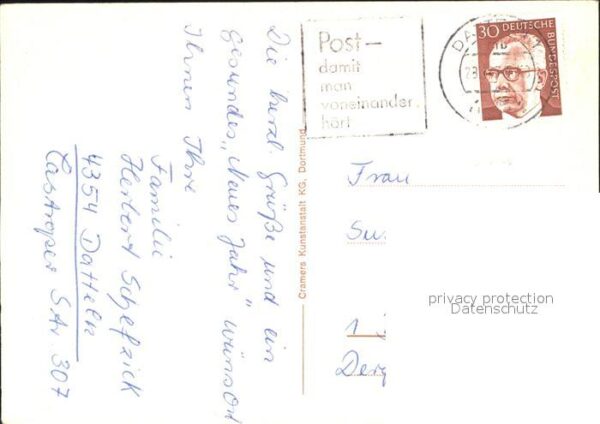 Die herzl. Grüße und ein
gesundes „Neues Jahr" wünscht
Ihnen Ihre
Familie
Herbert
4354 Datteln
Castroper Str. 307
Cramers Kunstanstalt KG, Dortmund
Post-
damit
man
voneinander
hört
30 DEUTSCHE BUNDESPOST
Frau
Su
1
privacy protection
Datenschutz